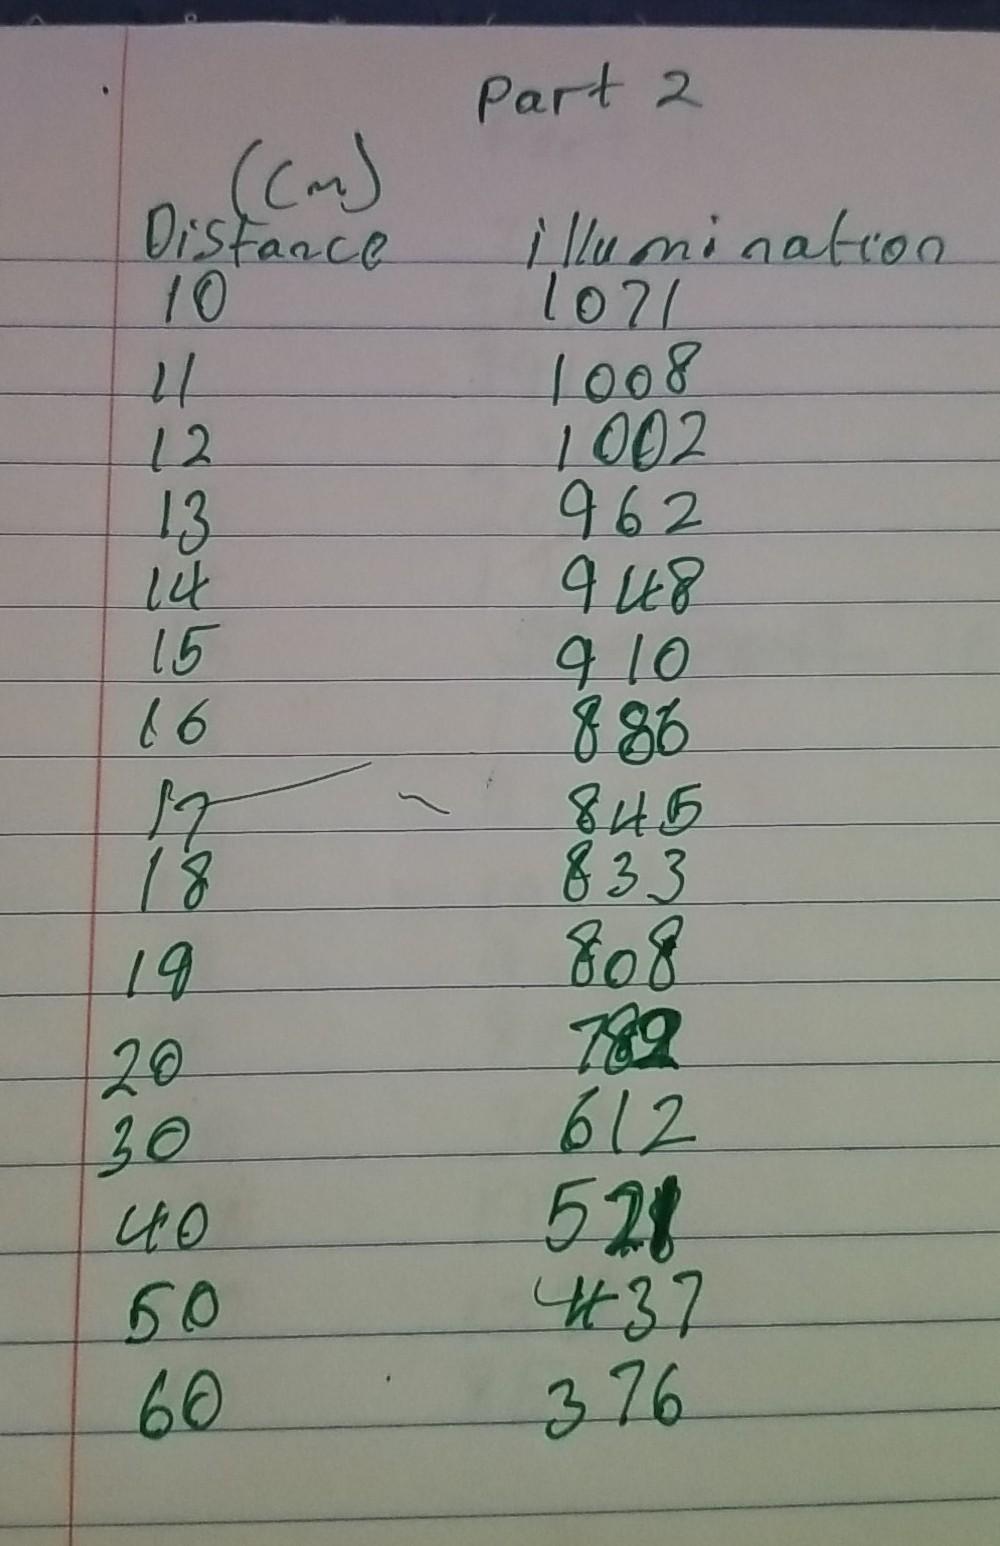 Part 2
(Cm)
Distance illumination
10 1071
11 1008
12 1002
13 962
14 948
15 910
16 886
17 845
18 833
19 808
20 782
30 612
40 521
50 437
60 376